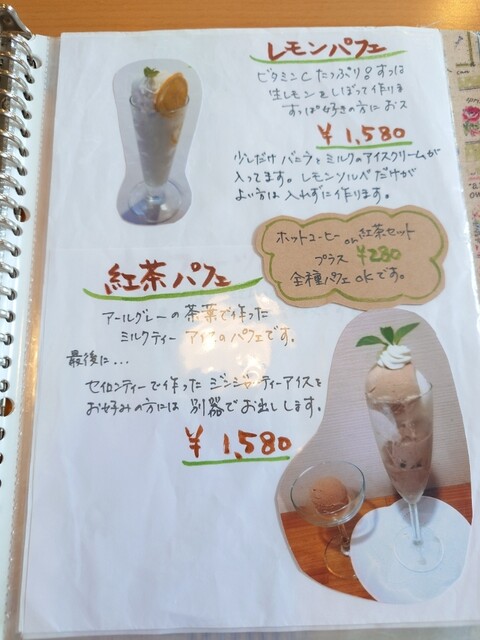 レモンパフェ
ビタミンCたっぷり！すっぱ
生レモンをしぼって作りま
すっぱ好きの方におス
¥1,580
少しだけ バニラとミルクのアイスクリームが
入ってます。レモンソルベだけが
よい方は入れずに作ります。
ホットコーヒー or 紅茶セット
プラス ¥280
全種パフェ okです。
紅茶パフェ
アールグレーの茶葉で作った
ミルクティー アイスのパフェです。
最後に…
セイロンティーで作った ジンジャーティーアイスを
お好みの方には 別器でお出しします。
¥1,580